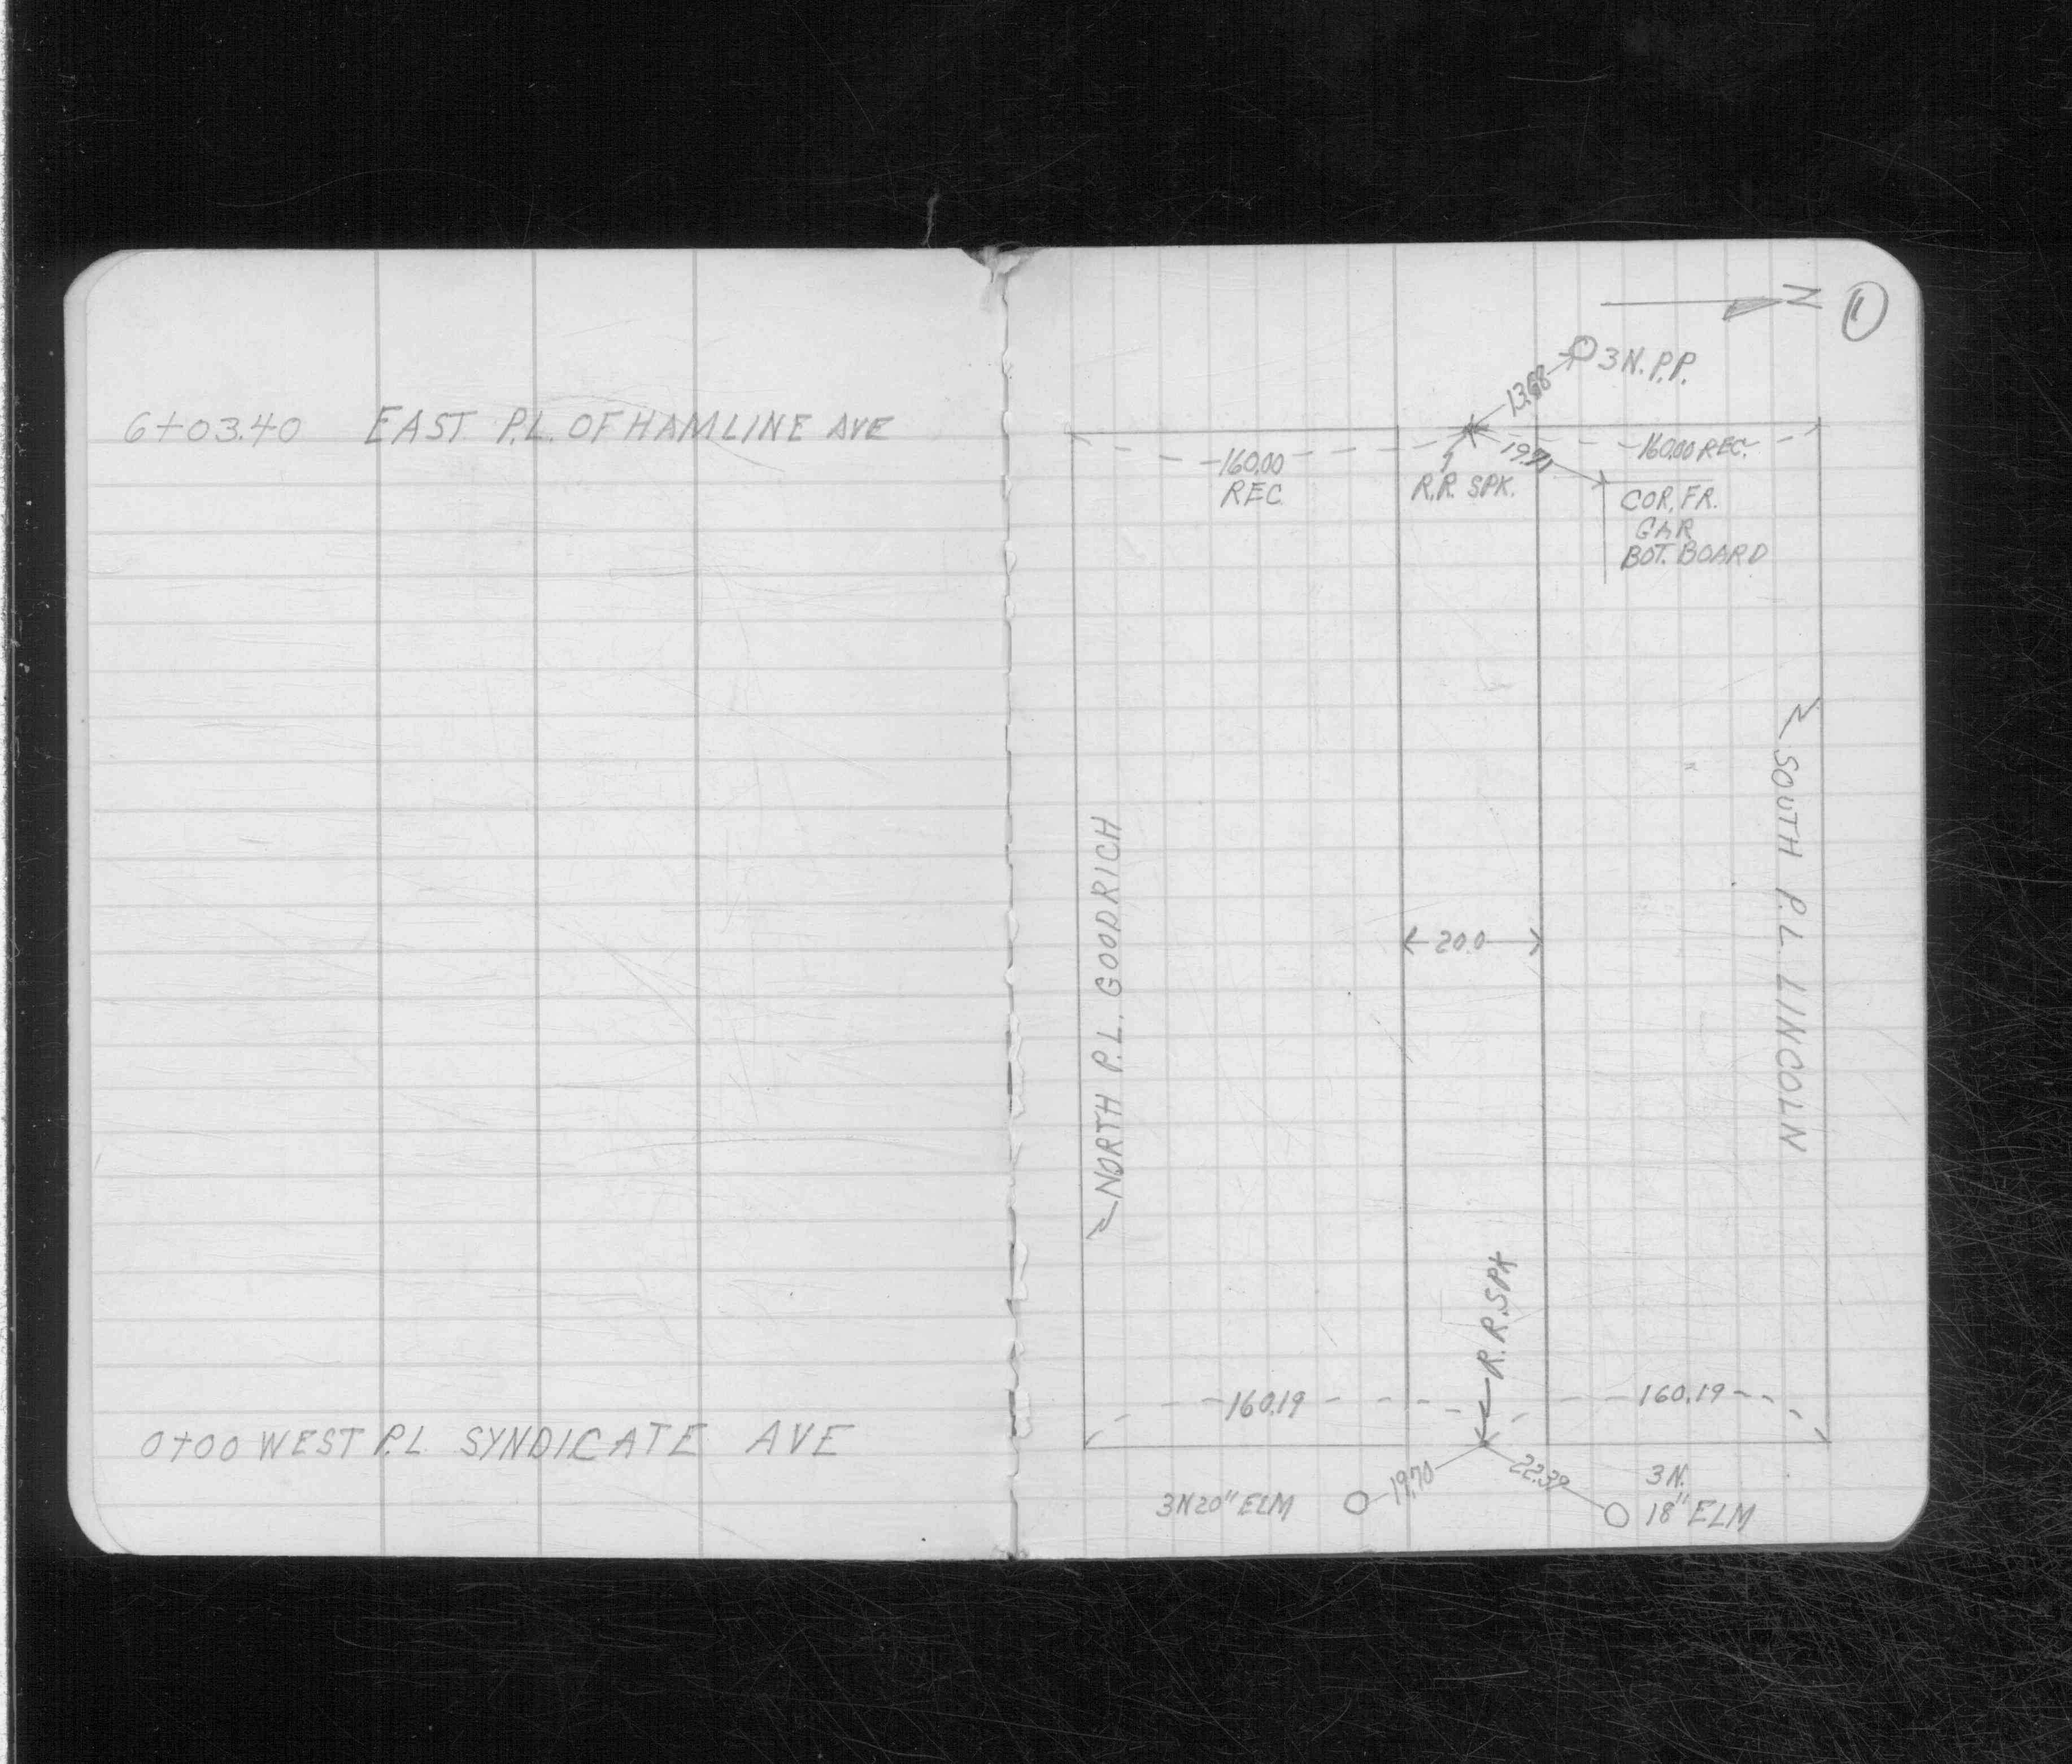 6+03.40 EAST P.L. OF HAMLINE AVE
0+00 WEST P.L. SYNDICATE AVE
N
1
3N. P.P.
13.68
160.00
REC.
R.R. SPK.
160.00 REC.
COR. FR.
GAR
BOT. BOARD
SOUTH P.L. LINCOLN
NORTH P.L. GOODRICH
20.0
R.R. SPK
160.19
160.19
19.70
22.39
3N 20" ELM
3N.
18" ELM